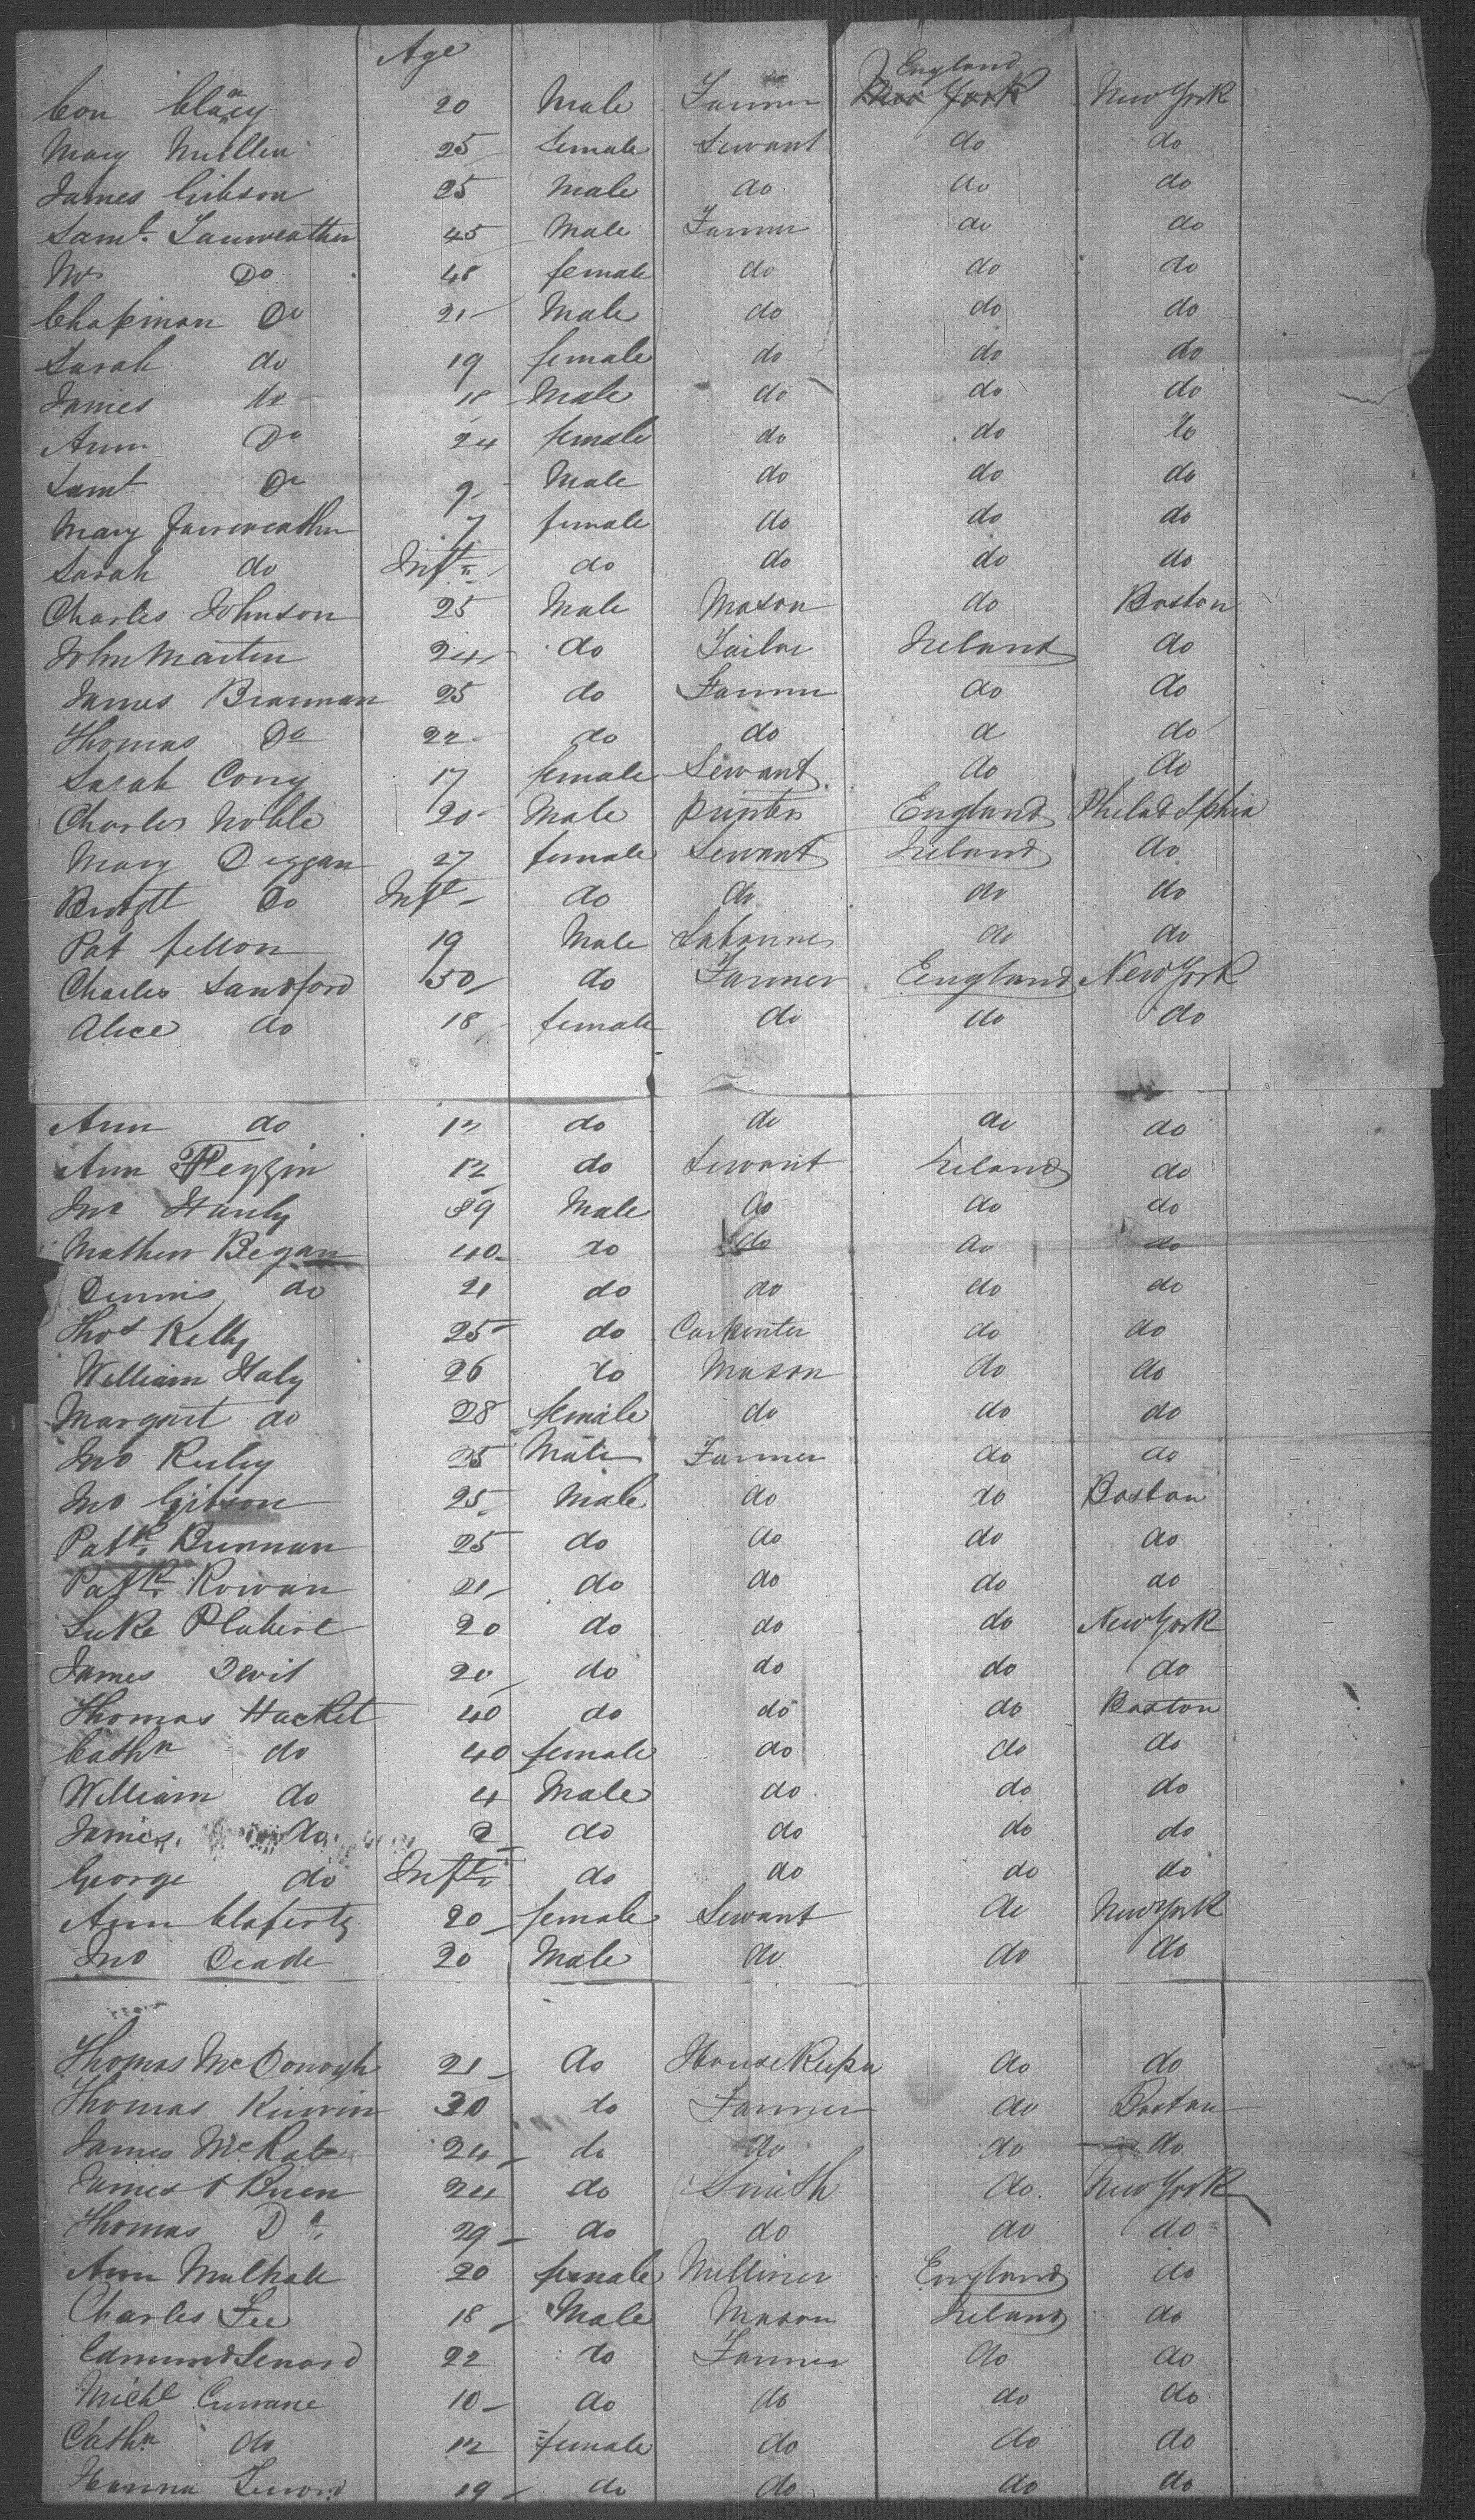 Age
England
Con Clancy 20 Male Farmer New York New York
Mary Mullen 25 female Servant do do
James Gibson 25 Male do do do
Saml. Fairweather 45 Male Farmer do do
Mrs Do 48 female do do do
Chapman Do 21 Male do do do
Sarah do 19 female do do do
James do 18 Male do do do
Ann Do 24 female do do do
Saml Do 9 Male do do do
Mary Fairweather 7 female do do do
Sarah do Inft do do do do
Charles Johnson 25 Male Mason do Boston
John Martin 24 do Tailor Ireland do
James Brannan 25 do Farmer do do
Thomas Do 22 do do d do
Sarah Cony 17 female Servant do do
Charles Noble 20 Male printer England Philadelphia
Mary Deggan 27 female Servant Ireland do
Bridgtt Do Inft do do do do
Pat fellon 19 Male Labourer do do
Charles Sandford 50 do Farmer England New York
Alice do 18 female do do do
Ann do 12 do do do do
Ann 12 do Servant Ireland do
Jno Hanly 39 Male do do do
Mathew Regan 40 do do do do
Dennis do 21 do do do do
Thos Kelly 25 do Carpenter do do
William Haly 26 do Mason do do
Margart do 28 female do do do
Jno Reiley 25 Male Farmer do do
Jno Gibson 25 Male do do Boston
Patk. Brennan 25 do do do do
Patk. Rowan 21 do do do do
Luke 20 do do do New York
James Devit 20 do do do do
Thomas Hacket 40 do do do Boston
Cathn do 40 female do do do
William do 4 Male do do do
James do 2 do do do do
George do Inft do do do do
Ann Claferty 20 female Servant do New York
Jno Deade 20 Male do do do
Thomas McDonogh 21 do House Keeper do do
Thomas Kirwin 30 do Farmer do Boston
James McKabe 24 do do do do
James O Brien 24 do Smith do New York
Thomas Do. 29 do do do do
Ann Mulhall 20 female Milliner England do
Charles Fee 18 Male Mason Ireland do
Edmund Lenard 22 do Farmer do do
Michl Currane 10 do do do do
Cathn do 12 female do do do
Hanna Lenord 19 do do do do